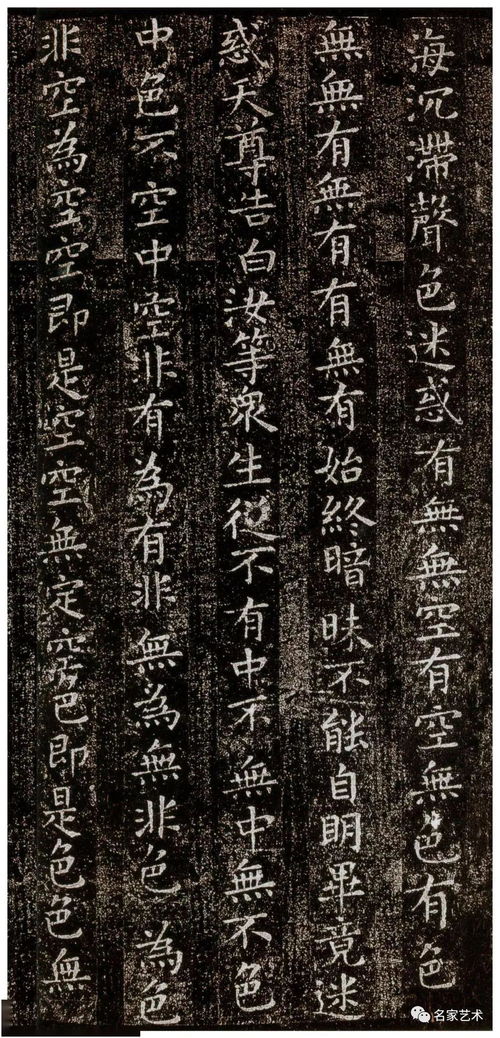 海沉滯聲色迷惑有無無空有空無色有色
無無有無有有無有始終暗昧不能自明畢竟迷
惑天尊告白汝等眾生從不有中不無中無不色
中色不空中空非有為有非無為無非色為色
非空為空空即是空空無定空色即是色色無
名家艺术